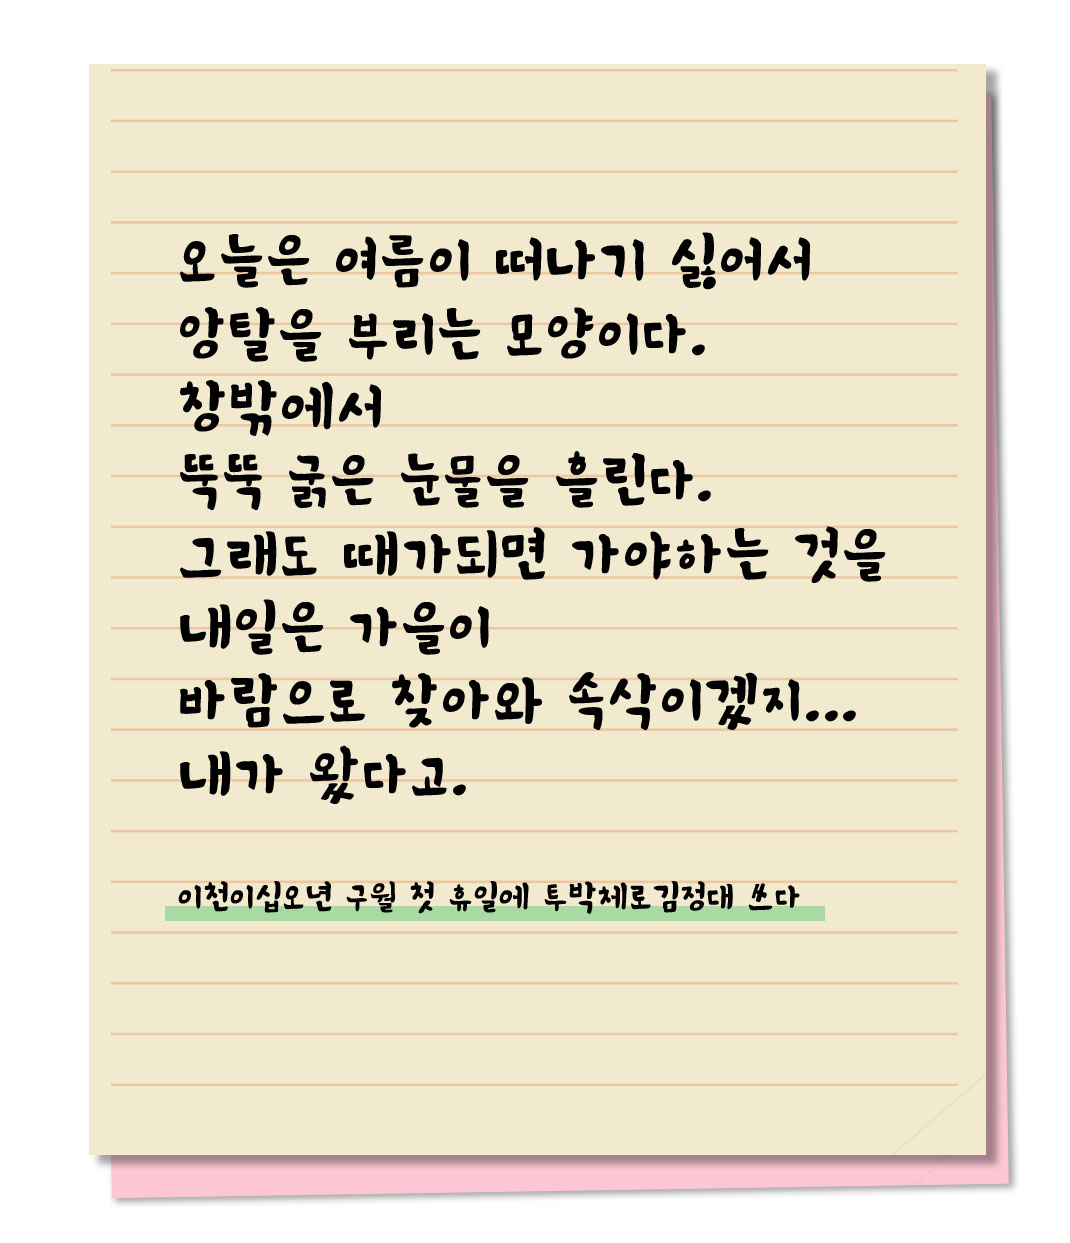 오늘은 여름이 떠나기 싫어서
앙탈을 부리는 모양이다.
창밖에서
뚝뚝 굵은 눈물을 흘린다.
그래도 때가되면 가야하는 것을
내일은 가을이
바람으로 찾아와 속삭이겠지...
내가 왔다고.
이천이십오년 구월 첫 휴일에 투박체로김정대 쓰다